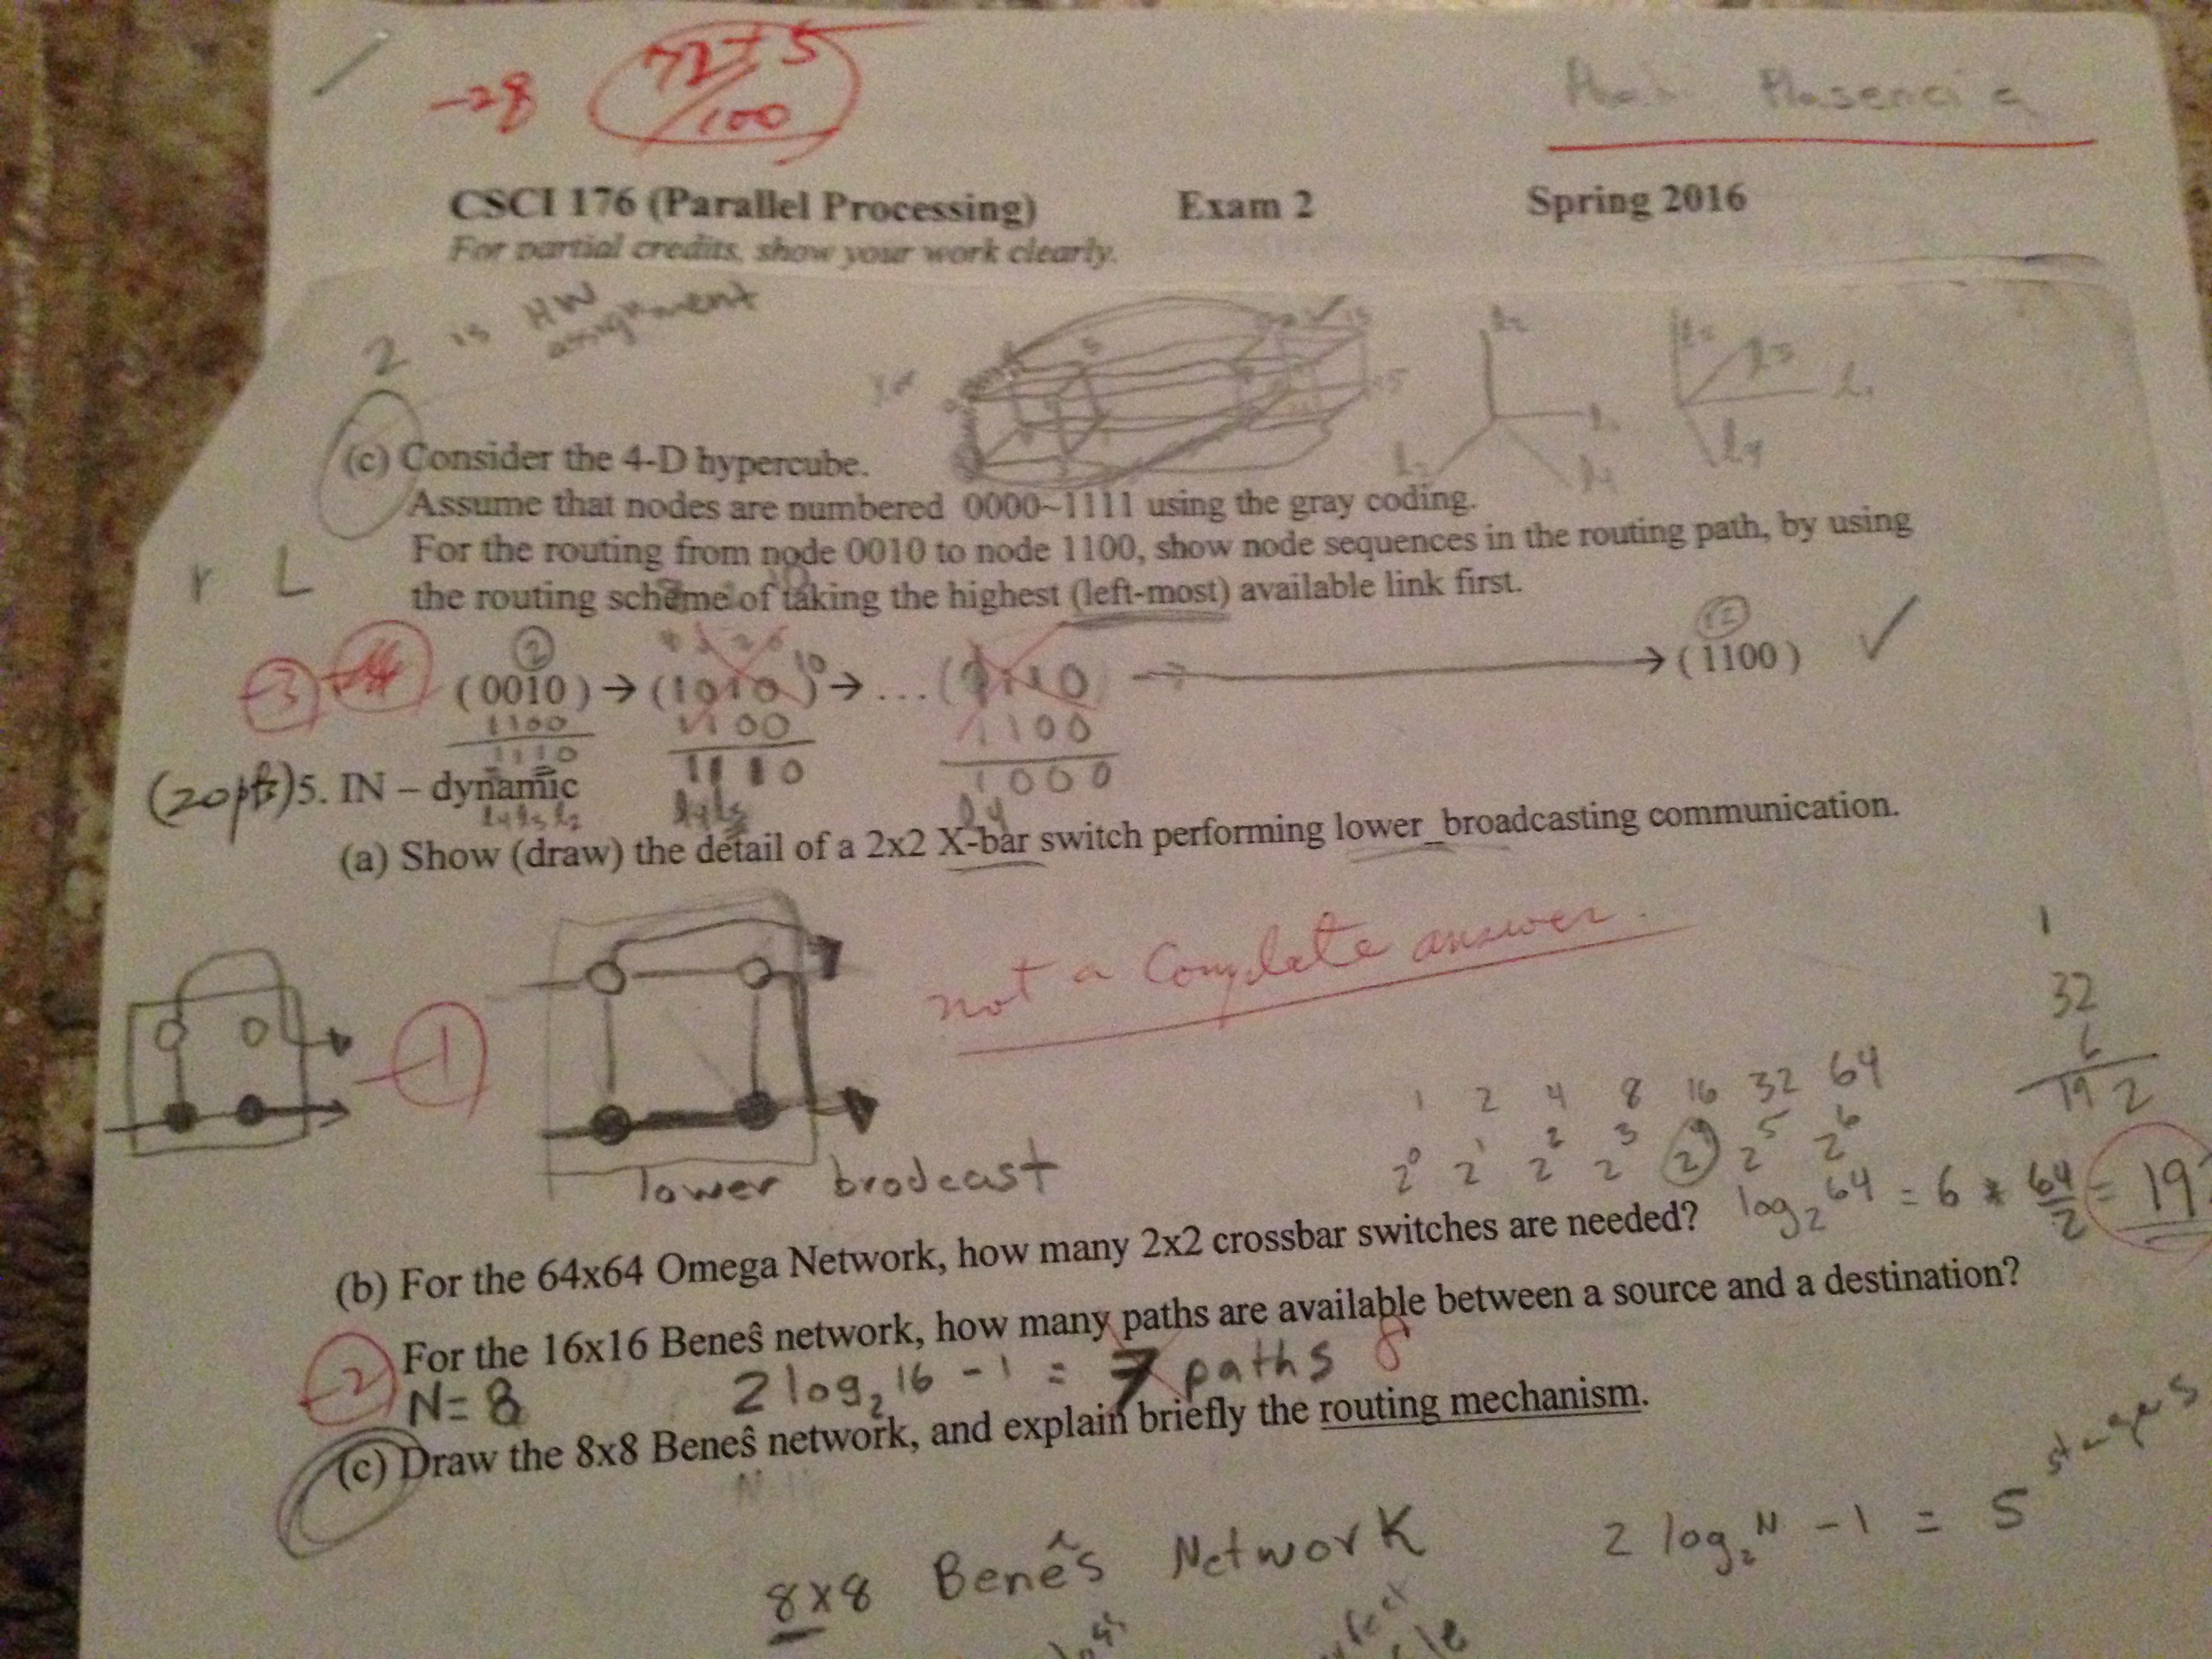 -28
72+5
100
CSCI 176 (Parallel Processing) Exam 2 Spring 2016
For partial credits, show your work clearly.
2 is HW
assignment
(c) Consider the 4-D hypercube.
Assume that nodes are numbered 0000~1111 using the gray coding.
For the routing from node 0010 to node 1100, show node sequences in the routing path, by using
the routing scheme of taking the highest (left-most) available link first.
r L
-3
(0010) → (1010) → . . . (0110) → → (1100)
2
12
1100
1110
1100
1110
1100
1000
(20pts) 5. IN – dynamic
(a) Show (draw) the detail of a 2x2 X-bar switch performing lower broadcasting communication.
-1
not a Complete answer.
lower brodcast
1 2 4 8 16 32 64
2⁰ 2¹ 2² 2³ 2⁴ 2⁵ 2⁶
32
6
192
(b) For the 64x64 Omega Network, how many 2x2 crossbar switches are needed? log₂ 64 = 6 * 64/2 = 192
For the 16x16 Beneŝ network, how many paths are available between a source and a destination?
-2
N = 8 2 log₂ 16 - 1 = 7 paths 8
(c) Draw the 8x8 Beneŝ network, and explain briefly the routing mechanism.
8x8 Benês Network 2 log₂ N - 1 = 5 stages